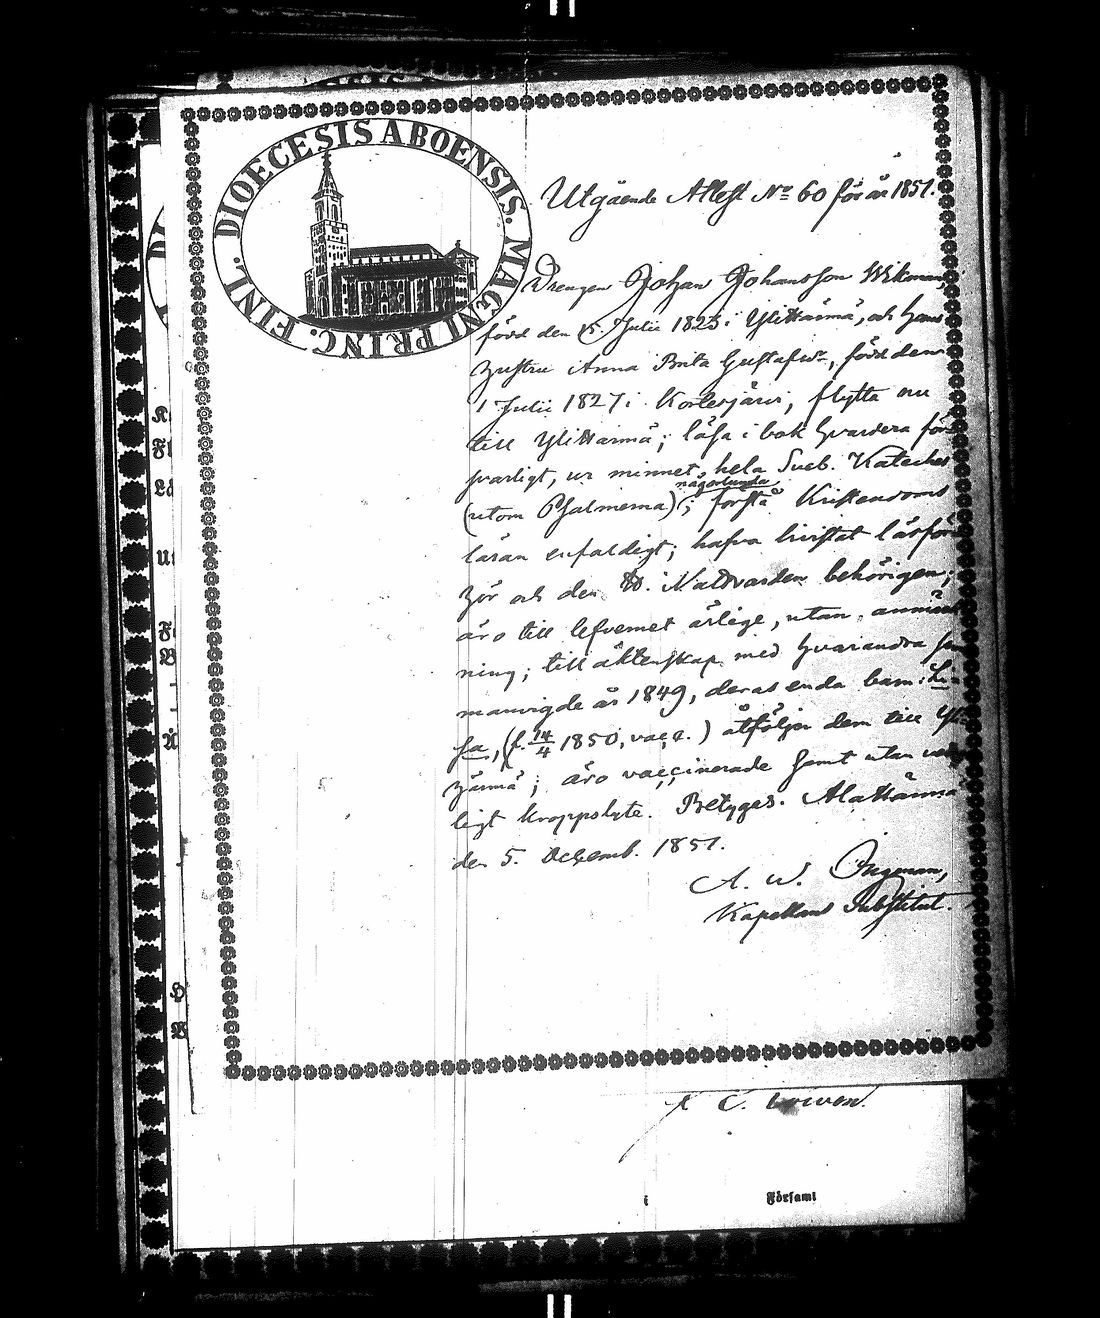 DIOECESIS ABOENSIS. MAGNI PRINC. FINL.
Utgående Attest No 60 för år 1851.
Drengen Johan Johansson Wikman
född den 15. Julii 1823 i Ylihärmä, och hans
hustru Anna Brita Gustafsdr, född den
1 Julii 1827 i Kortesjärvi, flytta nu
till Ylihärmä; läsa i bok hvardera för-
svarligt, ur minnet hela Sveb. Kateches
(utom Psalmerna); någorlunda förstå Kristendoms
läran enfaldigt; hafva bivistat läsför-
hör och den H. Nattvarden behörigen;
äro till lefvernet ärlige, utan anmärk
ning; till äktenskap med hvarandra sam
manvigde år 1849, deras enda barn: Li-
sa, (f. 14/4 1850, vacc.) åtföljer dem till Yli-
härmä; äro vaccinerade samt utan
ligt kroppslyte. Betygas. Alahärmä
den 5. Decemb. 1851.
A. W. Ingman,
Kapellans Substitut.
i Församl